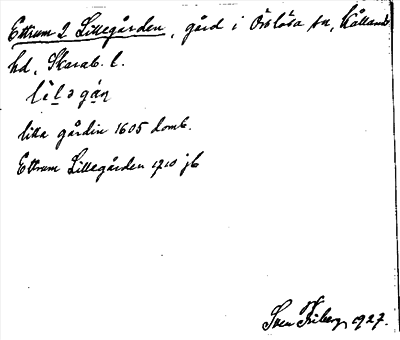 Ettrum 2 Lillegården, gård i Örslösa sn, Kållands
hd, Skarab. l.
lìlǝ gán
lilla gårdin 1605 domb.
Ettrum Lillegården 1710 jb
Sven Friberg 1927.